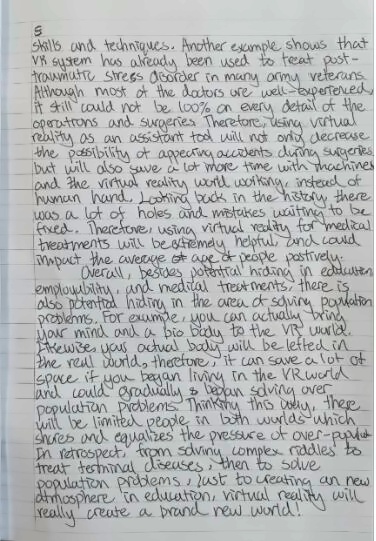 5
skills and techniques. Another example shows that
VR system has already been used to treat post-
traumatic stress disorder in many army veterans.
Although most of the doctors are well-experienced,
it still could not be 100% on every detail of the
operations and surgeries. Therefore, using virtual
reality as an assistant tool will not only decrease
the possibility of appearing accidents during surgeries,
but will also save a lot more time with machines
and the virtual reality world working, instead of
human hand. Looking back in the history there
was a lot of holes and mistakes waiting to be
fixed. Therefore, using virtual reality for medical
treatments will be extremely helpful, and could
impact the average age of people postively.
Overall, besides potential hiding in education
employability, and medical treatments, there is
also potential hiding in the area of solving population
problems. For example, you can actually bring
your mind and a bio body to the VR world.
Likewise, your actual body will be lefted in
the real world, therefore, it can save a lot of
space if you began living in the VR world
and could gradually began solving over
population problems. Thinking this way, there
will be limited people in both worlds which
shares and equalizes the pressure of over-
In retrospect, from solving complex riddles to
treat terminal diseases, then to solve
population problems, just to creating an new
atmosphere in education, virtual reality will
really create a brand new world!